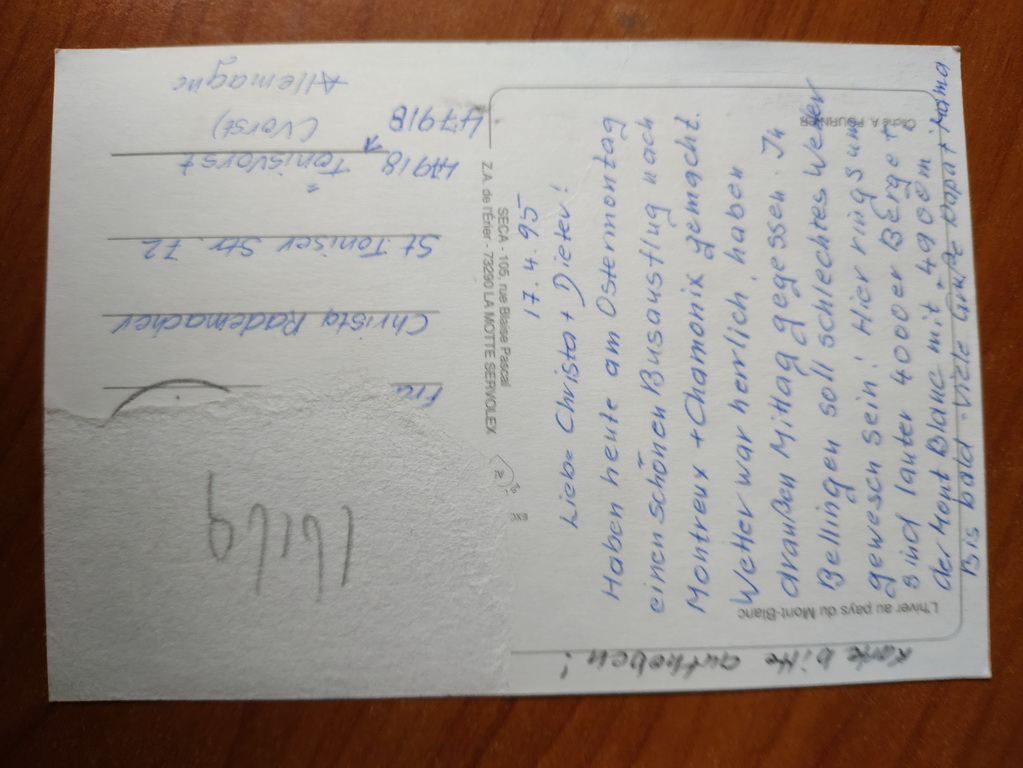 L'hiver au pays du Mont-Blanc
Karte bitte aufheben!
17.4.95
Liebe Christa + Dieter!
Haben heute am Ostermontag
einen schönen Busausflug nach
Montreux + Chamonix gemacht.
Wetter war herrlich, haben
draußen Mittag gegessen. In
Bellingen soll schlechtes Wetter
gewesen sein! Hier rings um
sind lauter 4000er Berge +
der Mont Blanc mit 4900m!
Bis bald - Viele Grüße Papa + Mama
Cliché A. FOURNIER
SECA - 105, rue Blaise Pascal
Z.A. de l'Érier - 73290 LA MOTTE SERVOLEX
Christa Rademacher
St Töniser Str. 72
47918 Tönisvorst
47918 (Vorst)
Allemagne